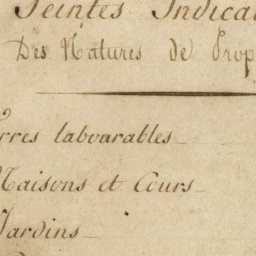 Teintes Indica
Des Natures de Prop
rres labourables
Maisons et Cours
Jardins